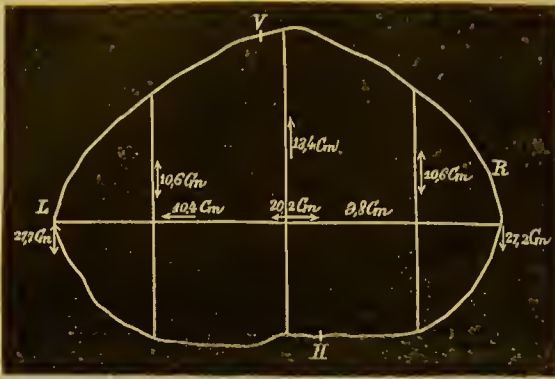 V
13,4 Cm.
10,6 Cm
10,6 Cm
R
L
10,4 Cm
20,2 Cm
9,8 Cm
27,7 Cm
27,2 Cm
H